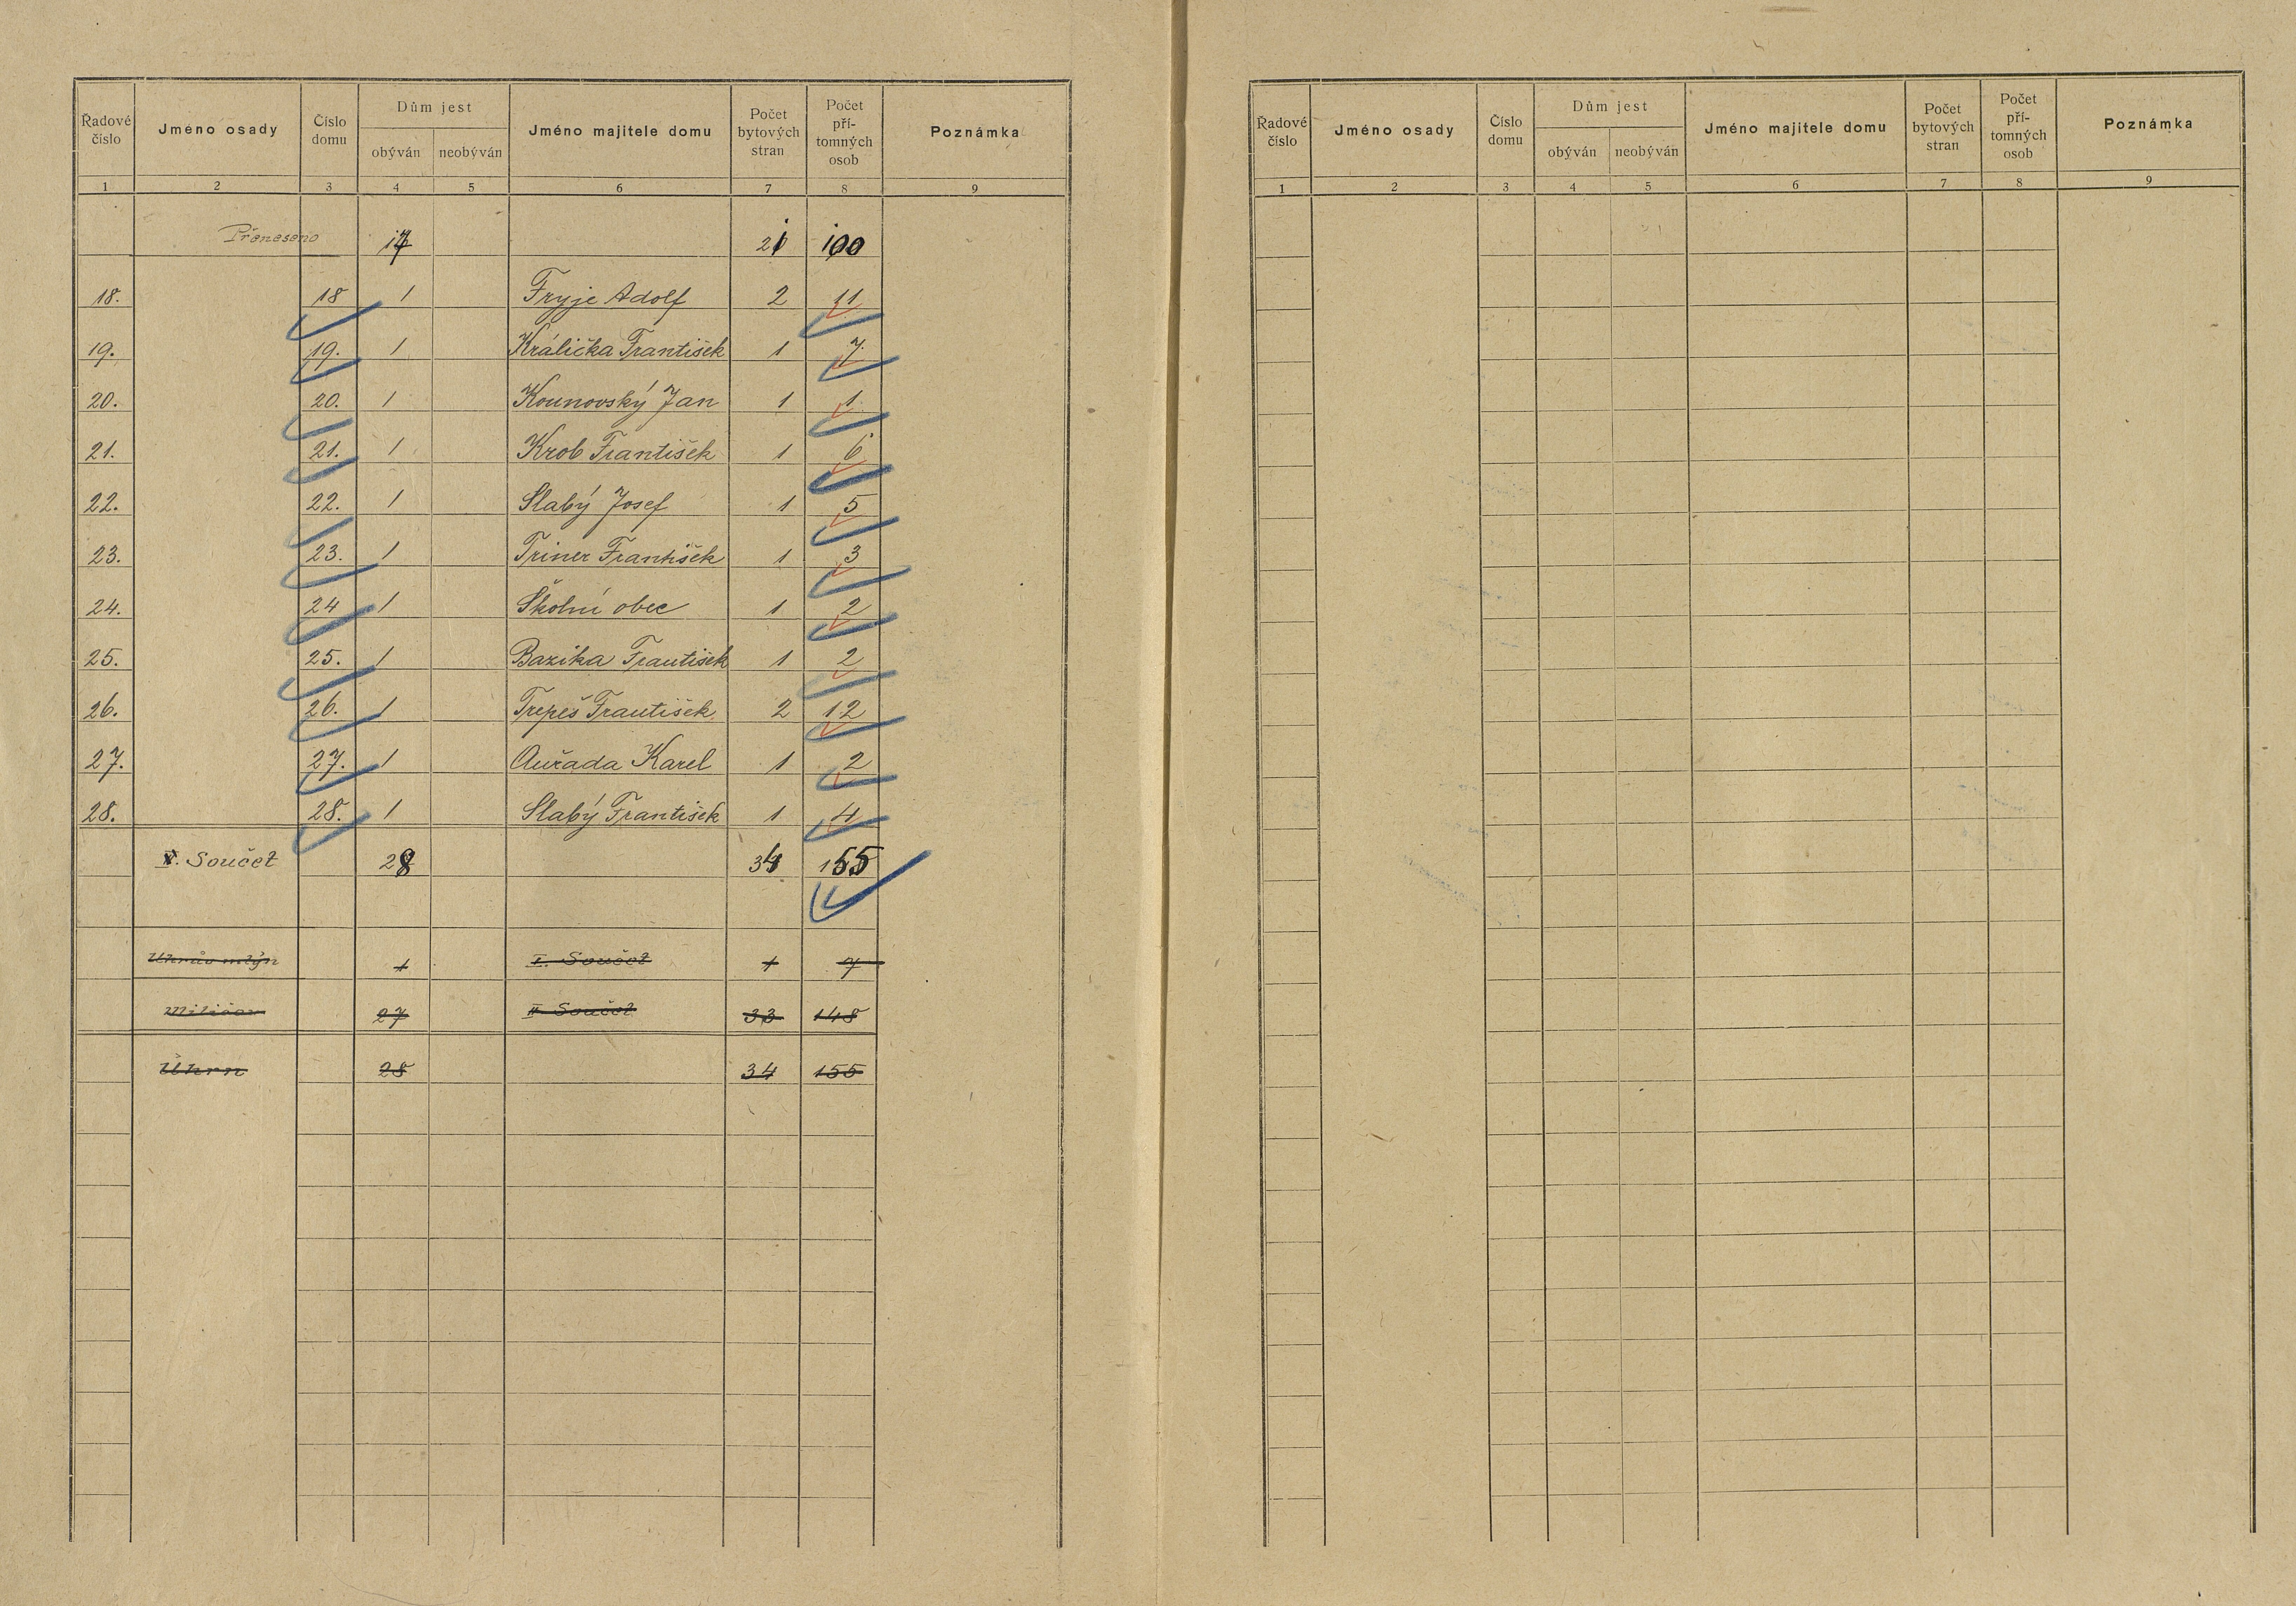 Řadové číslo | Jméno osady | Číslo domu | Dům jest obýván | neobýván | Jméno majitele domu | Počet bytových stran | Počet pří- tomných osob | Poznámka
1 2 3 4 5 6 7 8 9
Přeneseno 17 21 100
18. 18 1 Fryje Adolf 2 11
19. 19. 1 Králička František 1 7
20. 20. 1 Kounovský Jan 1 1
21. 21. 1 Krob František 1 6
22. 22. 1 Slabý Josef 1 5
23. 23. 1 Triner František 1 3
24. 24 1 Školní obec 1 2
25. 25. 1 Bazika František 1 2
26. 26. 1 Trepeš František 2 12
27. 27. 1 Auřada Karel 1 2
28. 28. 1 Slabý František 1 4
Součet 28 34 155
mlýn 1 I. Součet 1 7
Miličov 27 II Součet 33 148
Úhrn 28 34 155
Řadové číslo | Jméno osady | Číslo domu | Dům jest obýván | neobýván | Jméno majitele domu | Počet bytových stran | Počet pří- tomných osob | Poznámka
1 2 3 4 5 6 7 8 9